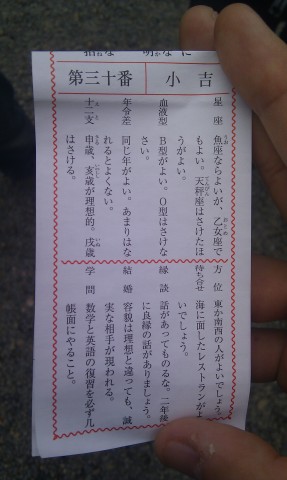 第三十番
小吉
星座 魚座ならよいが、乙女座で
もよい。天秤座はさけたほ
うがよい。
血液型 B型がよい。O型はさけな
さい。
年令差 同じ年がよい。あまりはな
れるとよくない。
十二支 申歳、亥歳が理想的。戌歳
はさける。
方位 東か南西の人がよいでしょう。
待ち合せ 海に面したレストランがよ
いでしょう。
縁談 話があってものるな。二年後
に良縁の話がありましょう。
結婚 容貌は理想と違っても、誠
実な相手が現われる。
学問 数学と英語の復習を必ず几
帳面にやること。